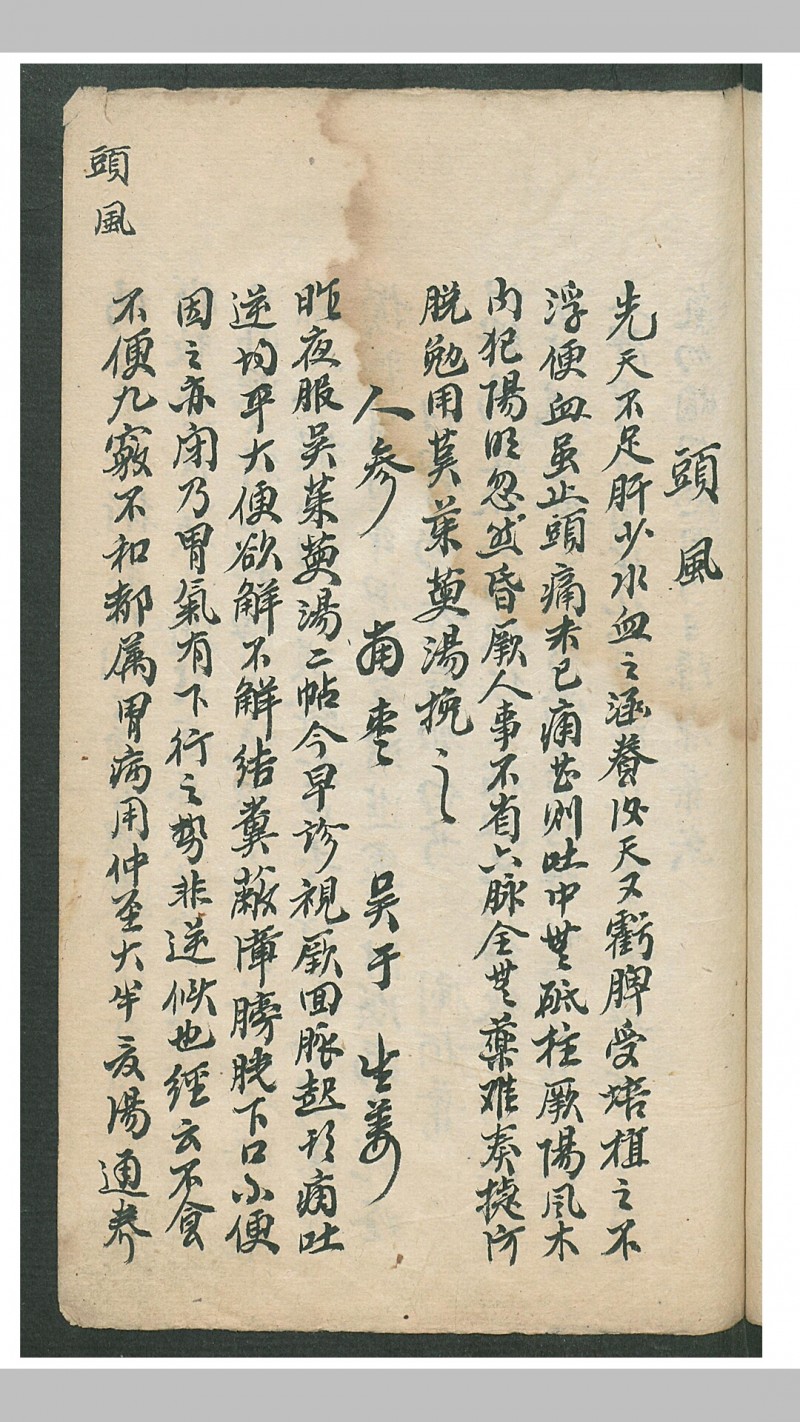 頭風
先天不足肝少水血之涵養後天又虧脾受培植之不
浮便血虽止頭痛未已痛甚則吐中無砥柱厥陽风木
內犯陽明忽然昏厥人事不省六脉全無藥难奏捷防
脱勉用吴茱萸湯挽之
人參 南枣 吴于 生姜
昨夜服吴茱萸湯二帖今早診視厥回脈起頭痛吐
逆均平大便欲解不解結糞蔽障膀胱下口小便
因之亦闭乃胃氣有下行之勢非逆候也經云不食
不便九竅不和都属胃病用仲圣大半夏湯通养
頭風